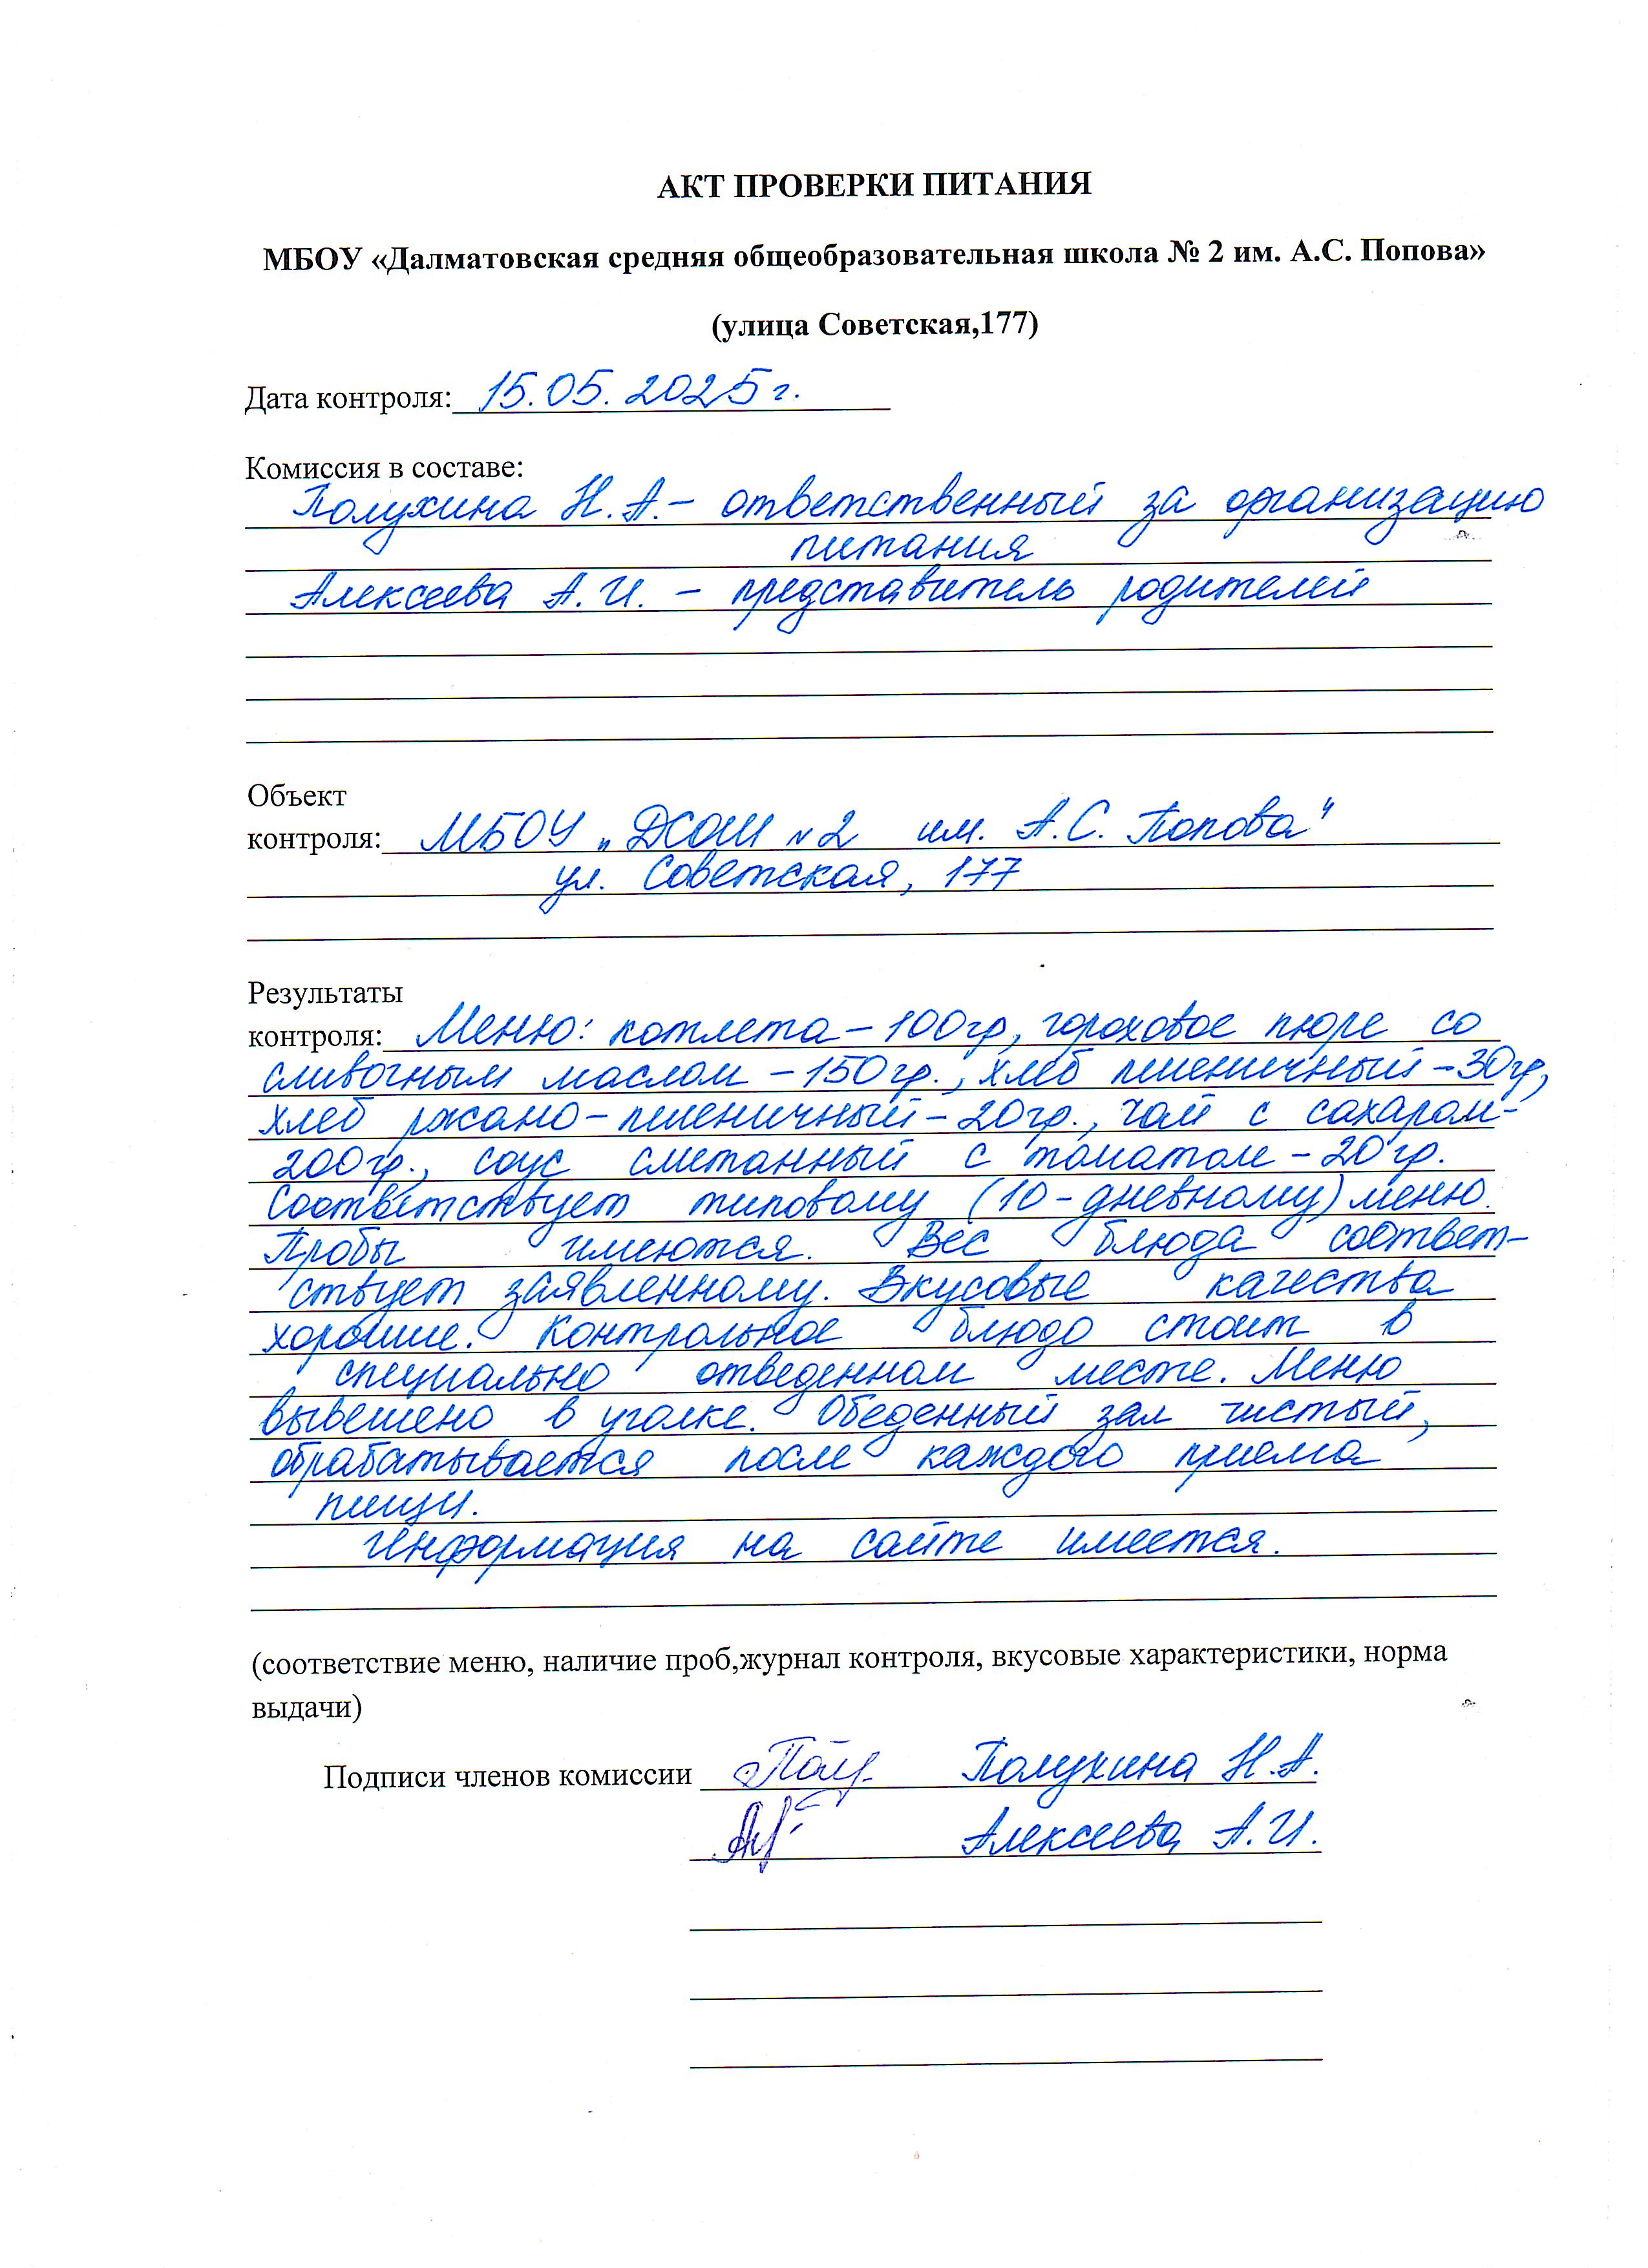 АКТ ПРОВЕРКИ ПИТАНИЯ
МБОУ «Далматовская средняя общеобразовательная школа № 2 им. А.С. Попова»
(улица Советская,177)
Дата контроля: 15.05.2025г.
Комиссия в составе:
Полухина Н.А.- ответственный за организацию
питания
Алексеева А.И. - представитель родителей
Объект
контроля: МБОУ „ДСОШ №2 им. А.С. Попова"
ул. Советская, 177
Результаты
контроля: Меню: котлета - 100гр, гороховое пюре со
сливочным маслом - 150гр., хлеб пшеничный - 30гр,
хлеб ржано-пшеничный - 20гр., чай с сахаром-
200гр., соус сметанный с томатом - 20гр.
Соответствует типовому (10-дневному) меню.
Пробы имеются. Вес блюда соответ-
ствует заявленному. Вкусовые качества
хорошие. Контрольное блюдо стоит в
специально отведенном месте. Меню
вывешено в уголке. Обеденный зал чистый,
обрабатывается после каждого приема
пищи.
Информация на сайте имеется.
(соответствие меню, наличие проб,журнал контроля, вкусовые характеристики, норма
выдачи)
Подписи членов комиссии Полухина Н.А.
Алексеева А.И.